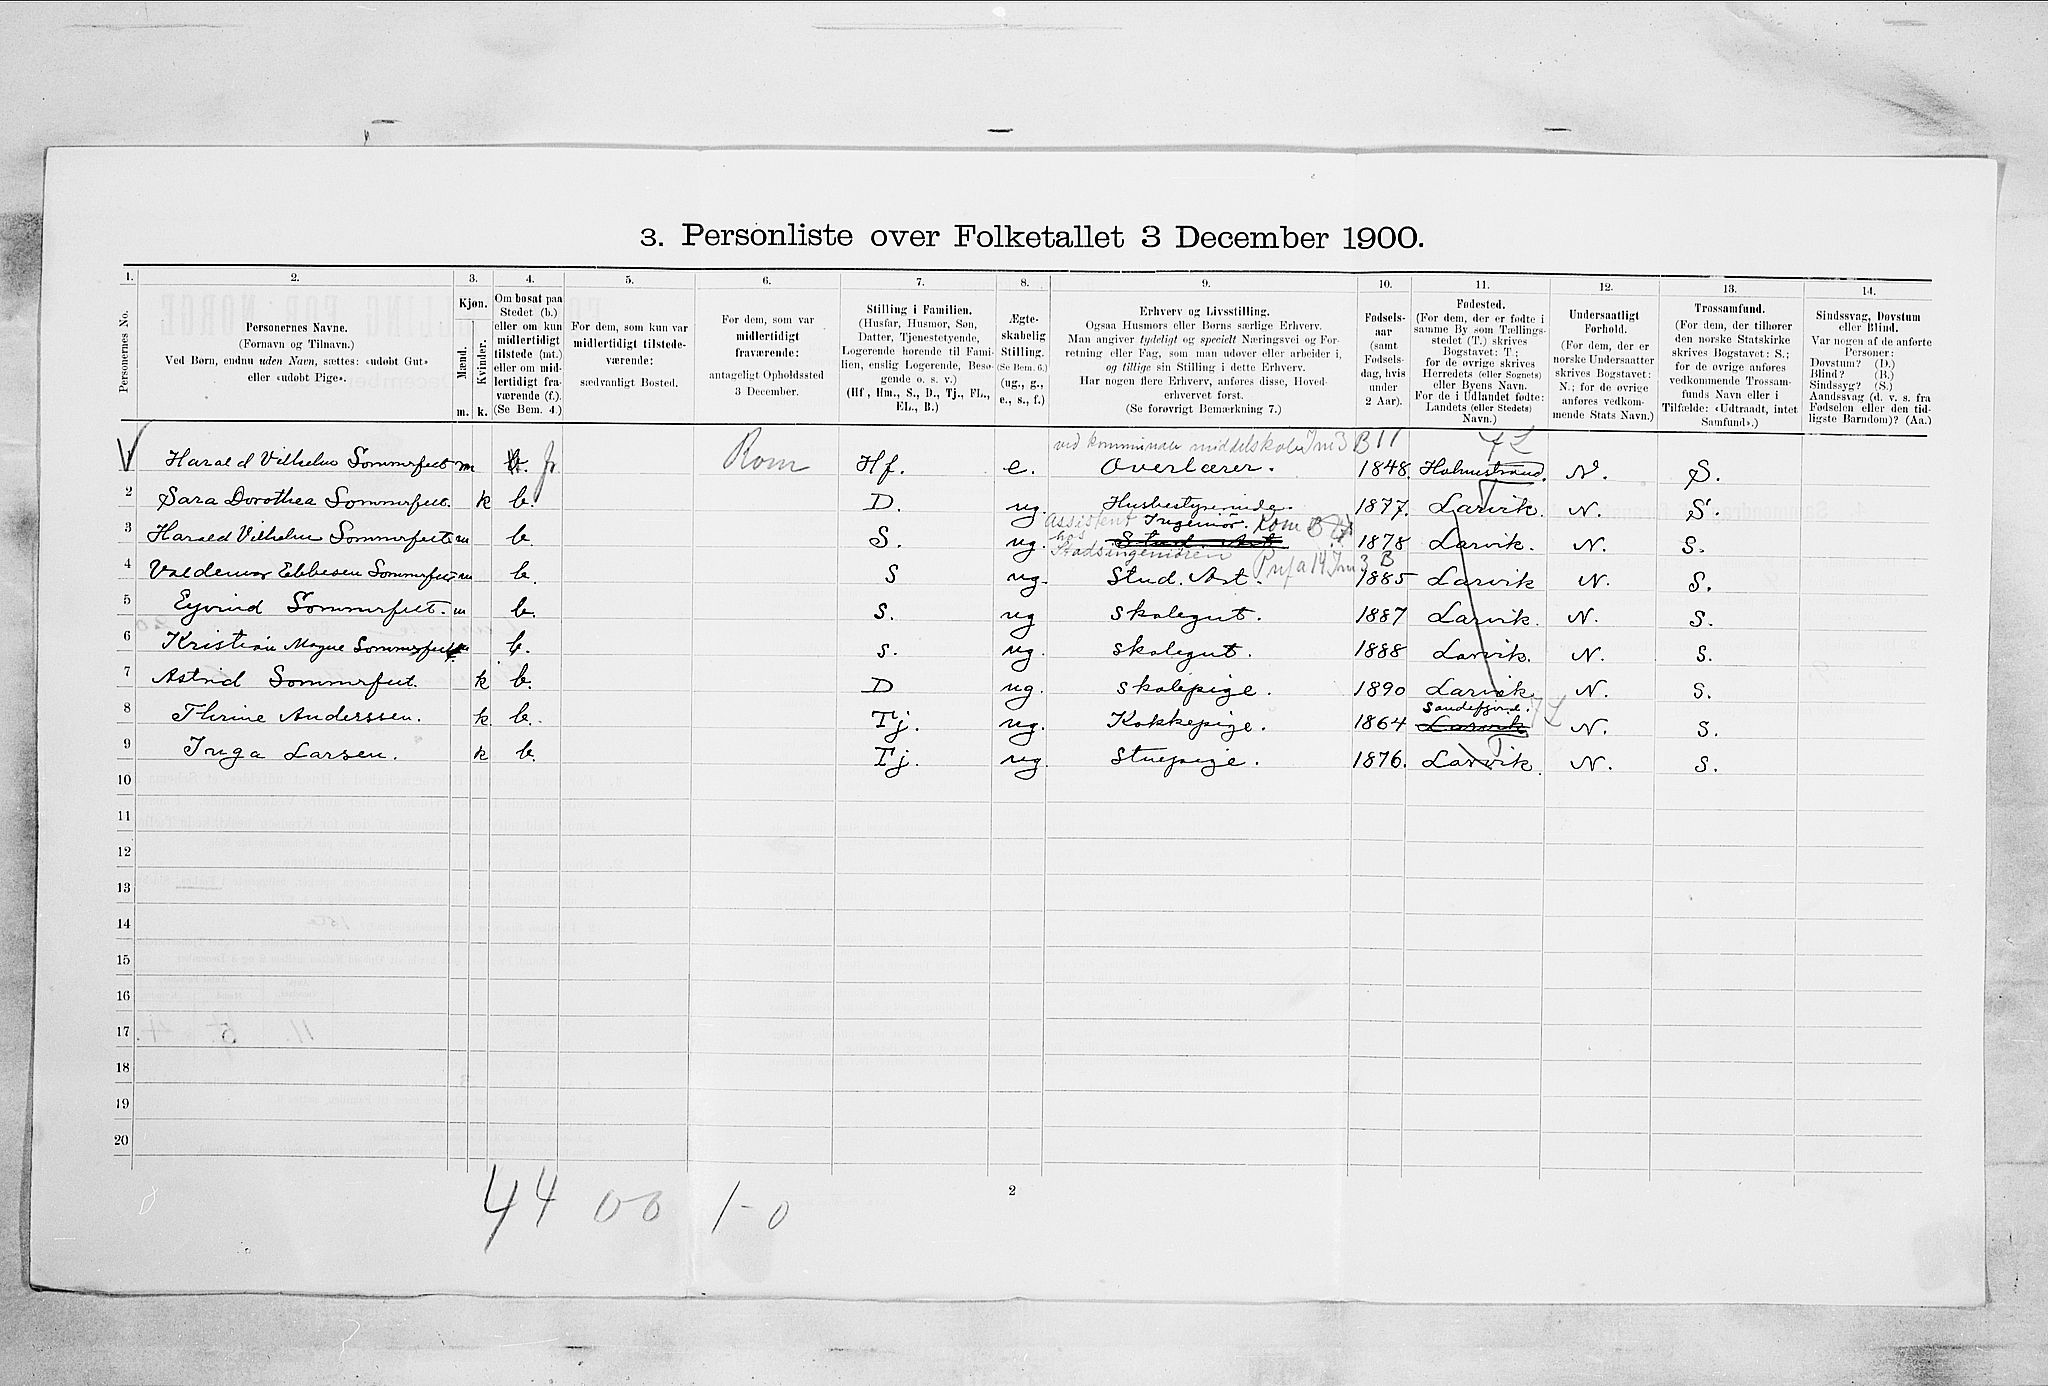 3. Personliste over Folketallet 3 December 1900.
1. 2. 3. 4. 5. 6. 7. 8. 9. 10. 11. 12. 13. 14.
Personernes No.
Personernes Navne.
(Fornavn og Tilnavn.)
Ved Børn, endnu uden Navn, sættes: «udøbt Gut»
eller «udøbt Pige».
Kjøn.
Mænd.
Kvinder.
m. k.
Om bosat paa
Stedet (b.)
eller om kun
midlertidigt
tilstede (mt.)
eller om mid-
lertidigt fra-
værende (f.).
(Se Bem. 4.)
For dem, som kun var
midlertidigt tilstede-
værende:
sædvanligt Bosted.
For dem, som var
midlertidigt
fraværende:
antageligt Opholdssted
3 December.
Stilling i Familien.
(Husfar, Husmor, Søn,
Datter, Tjenestetyende,
Logerende hørende til Fami-
lien, enslig Logerende, Besø-
gende o. s. v.)
(Hf., Hm., S., D., Tj., FL.,
EL., B.)
Ægte-
skabelig
Stilling.
(Se Bem. 6.)
(ug., g.,
e., s., f.)
Erhverv og Livsstilling.
Ogsaa Husmors eller Børns særlige Erhverv.
Man angiver tydeligt og specielt Næringsvei og For-
retning eller Fag, som man udøver eller arbeider i,
og tillige sin Stilling i dette Erhverv.
Har nogen flere Erhverv, anføres disse, Hoved-
erhvervet først.
(Se forøvrigt Bemærkning 7.)
Fødsels-
aar
(samt
Fødsels-
dag, hvis
under
2 Aar).
Fødested.
(For dem, der er fødte i
samme By som Tællings-
stedet (T.) skrives
Bogstavet: T.;
for de øvrige skrives
Herredets (eller Sognets)
eller Byens Navn.
For de i Udlandet fødte:
Landets (eller Stedets)
Navn.)
Undersaatligt
Forhold.
(For dem, der er
norske Undersaatter
skrives Bogstavet:
N.; for de øvrige
anføres vedkom-
mende Stats Navn.)
Trossamfund.
(For dem, der tilhører
den norske Statskirke
skrives Bogstavet: S.;
for de øvrige anføres
vedkommende Trossam-
funds Navn eller i
Tilfælde: «Udtraadt, intet
Samfund».)
Sindssvag, Døvstum
eller Blind.
Var nogen af de anførte
Personer:
Døvstum? (D.)
Blind? (B.)
Sindssyg? (S.)
Aandssvag (d. v. s. fra
Fødselen eller den tid-
ligste Barndom)? (Aa.)
ved kommunale middelskole
Harald Vilhelm Sommerfeet m b. f Rom Hf. e. Overlærer. 1848. Holmestrand. N. S.
2 Sara Dorothea Sommerfeet. k b. D. ug. Husbestyrerinde. 1877. Larvik. N. S.
Assistent Ingeniør. Kom
3 Harald Vilhelm Sommerfeet m b. S. ug. hos Stud. Art 1878 Larvik. N. S.
Stadsingeniøren
4 Valdemar Ebbesen Sommerfeet m b. S ug. Stud. Art 1885 Larvik N. S.
5 Eyvind Sommerfeet. m b. S. ug Skolegut. 1887 Larvik. N. S.
6 Kristian Magne Sommerfeet m b. S. ug. Skolegut. 1888 Larvik. N. S.
7 Astrid Sommerfeet. k b. D ug. Skolepige. 1890 Larvik N. S.
Sandefjord.
8 Thrine Anderssen. k b. Tj. ug. Kokkepige. 1864 Larvik N. S.
9 Inga Larsen. k b. Tj. ug. Stuepige. 1876. Larvik. N. S.
10
11
12
13
14
15
16
17
18
19
20
44 00 1-0
2